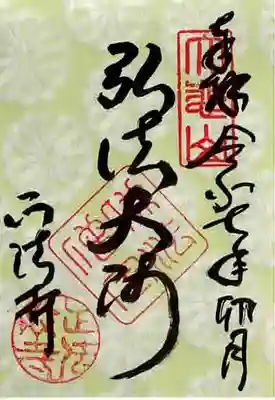 奉拝 令和七年 卯月
弘法大師
正法寺